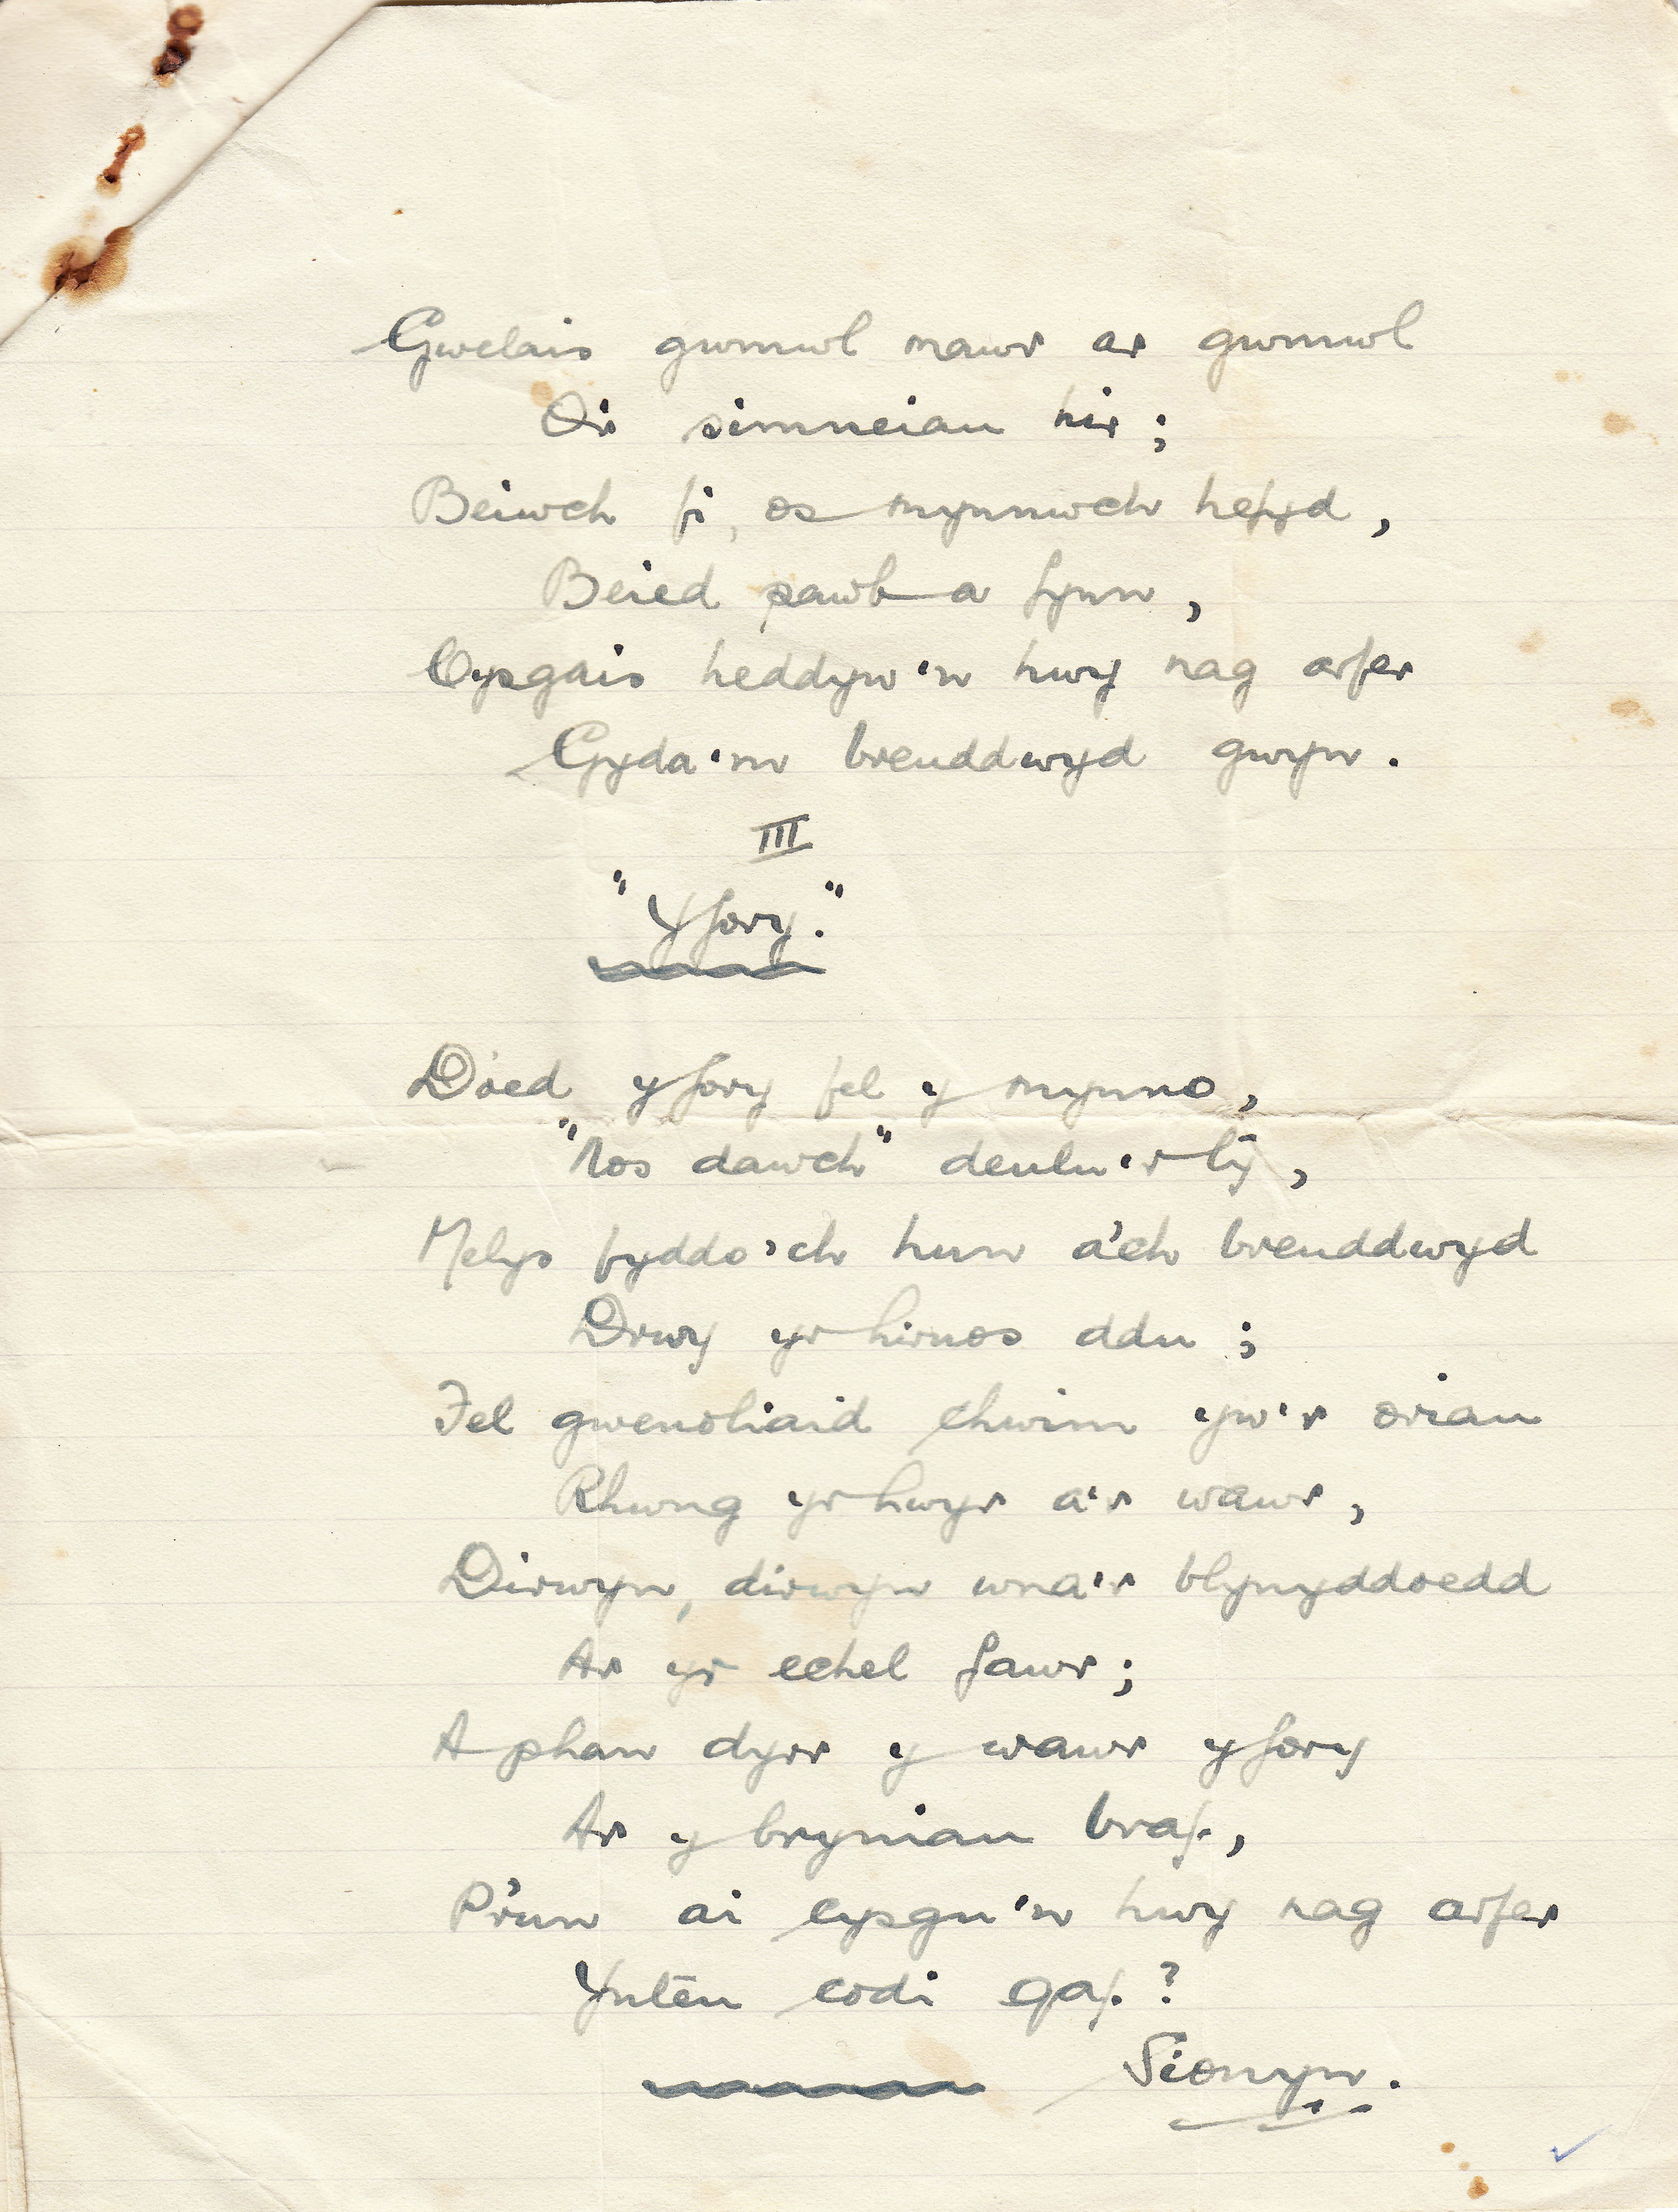 Gwelais gwmwl mawr ar gwmwl
O'r simneiau hir;
Beiwch fi, os mynnwch hefyd,
Beied pawb a fynn,
Cysgais heddyw'n hwy nag arfer
Gyda'm breuddwyd gwyn.
III
"Yfory."
Doed yfory fel y mynno,
"Nos dawch" deulu'r tŷ,
Melys fyddo'ch hun a'ch breuddwyd
Drwy yr hirnos ddu;
Fel gwenoliaid chwim yw'r oriau
Rhwng yr hwyr a'r wawr,
Dirwyn, dirwyn wna'r blynyddoedd
Ar yr echel fawr;
A phan dyrr y wawr yfory
Ar y bryniau braf,
P'run ai cysgu'n hwy nag arfer
Ynteu codi gaf?
Sionyn.